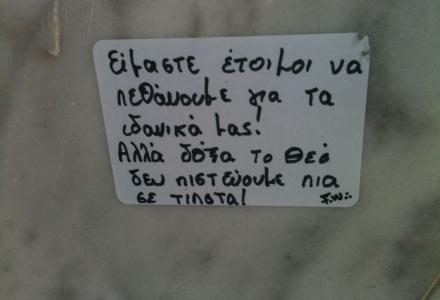 Είμαστε έτοιμοι να
πεθάνουμε για τα
ιδανικά μας!
Αλλά δόξα το Θεό
δεν πιστεύουμε πια
σε τίποτα!
F.W.: